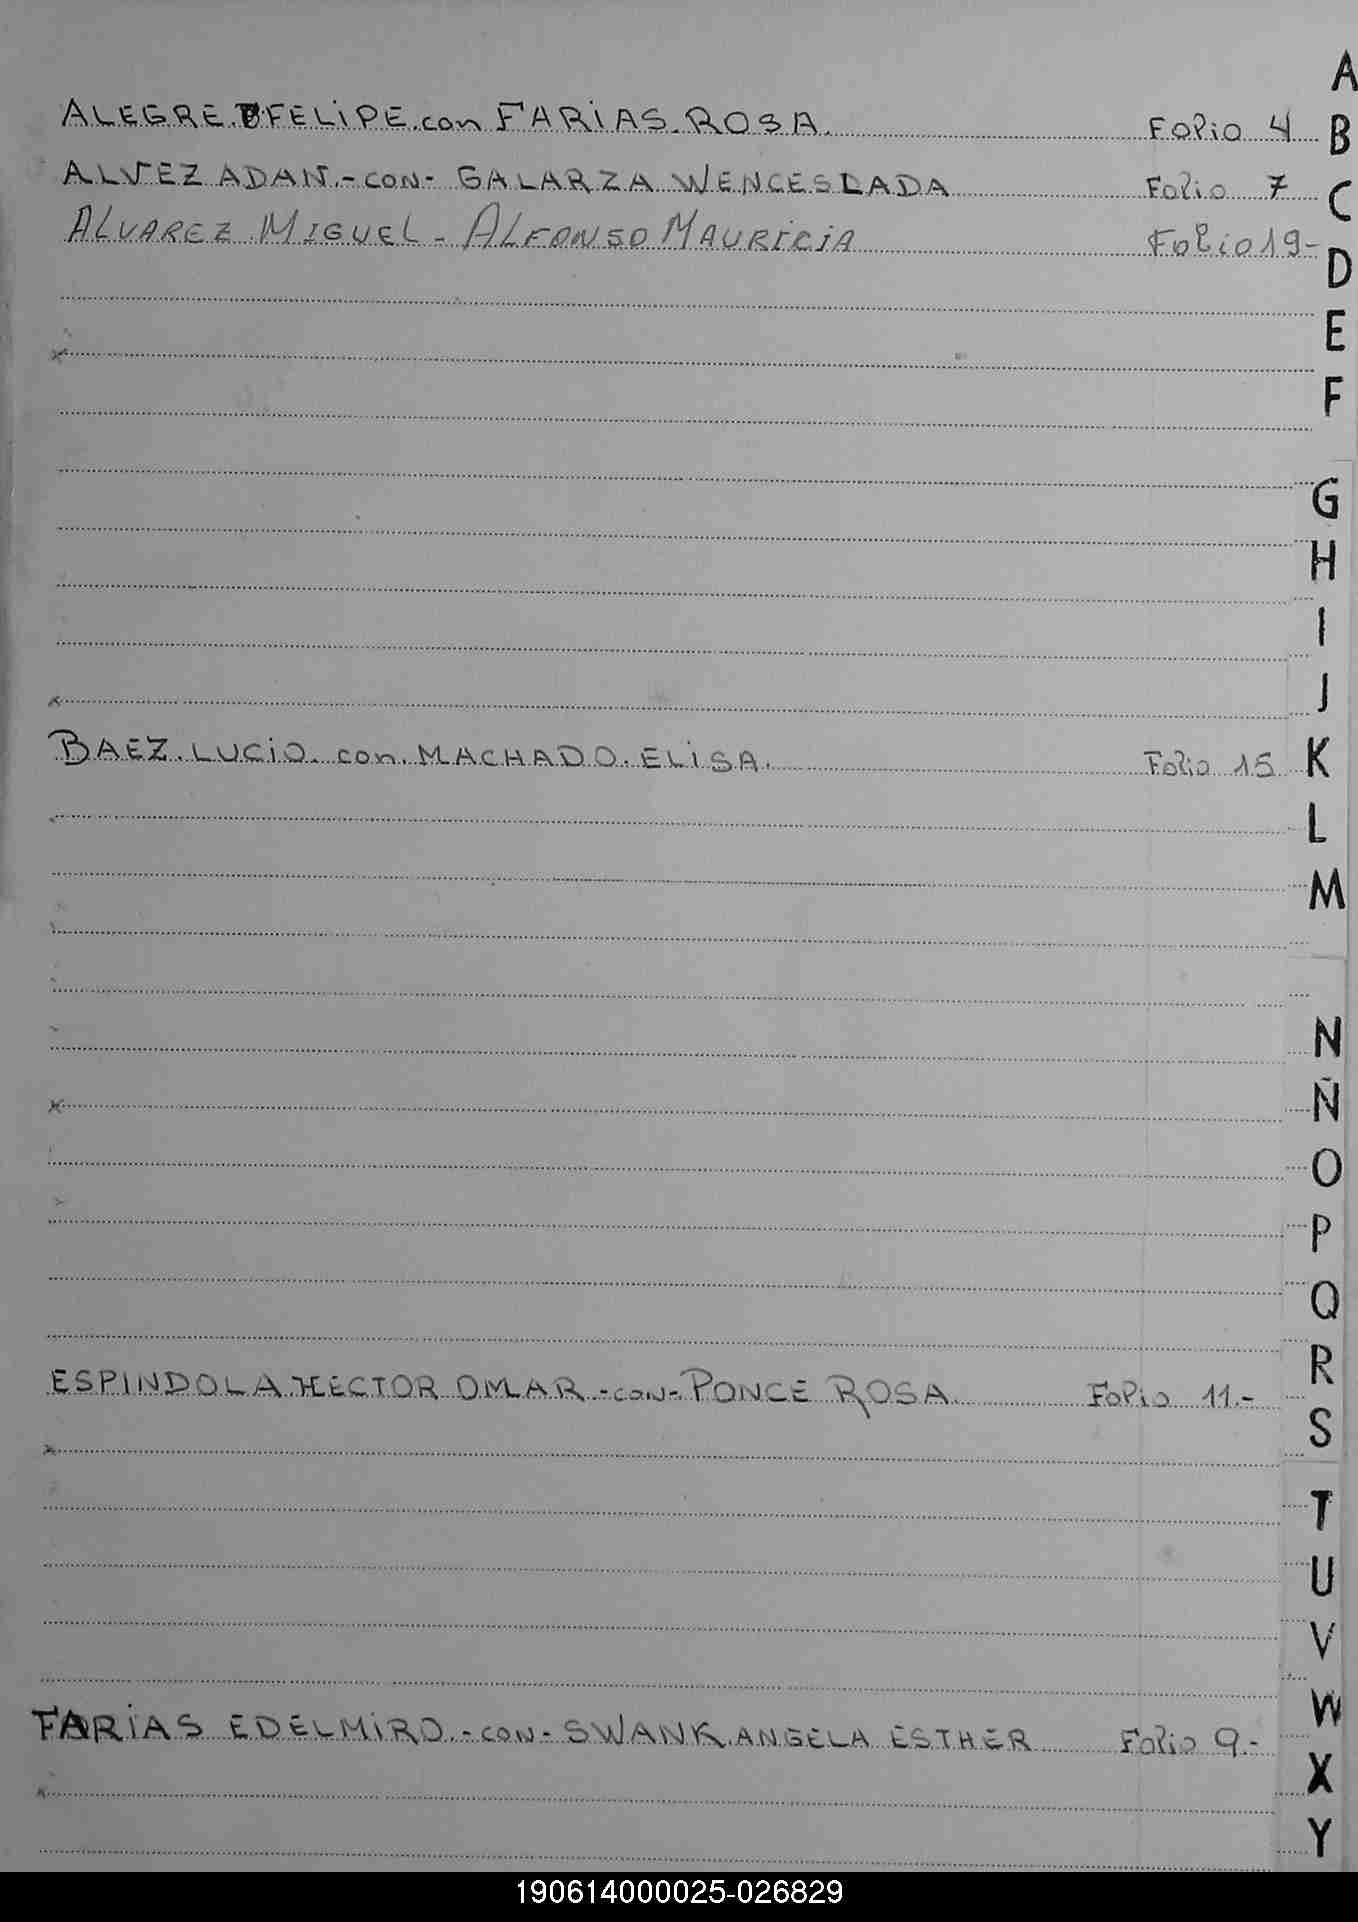 ALEGRE. FELIPE. con FARIAS. ROSA. Folio 4
ALVEZ ADAN.- con - GALARZA WENCESLADA Folio 7
ALVAREZ MIGUEL - ALFONSO MAURICIA Folio 19-
BAEZ. LUCIO. con. MACHADO. ELISA. Folio 15
ESPINDOLA HECTOR OMAR - con - PONCE ROSA. Folio 11.-
FARIAS EDELMIRO.- con - SWANK. ANGELA ESTHER Folio 9.-
A
B
C
D
E
F
G
H
I
J
K
L
M
N
Ñ
O
P
Q
R
S
T
U
V
W
X
Y
190614000025-026829